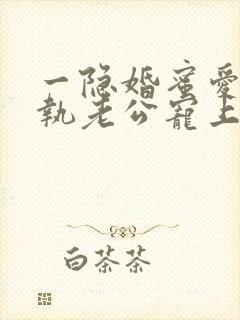 一隐婚蜜爱
执老公宠上
白茶茶